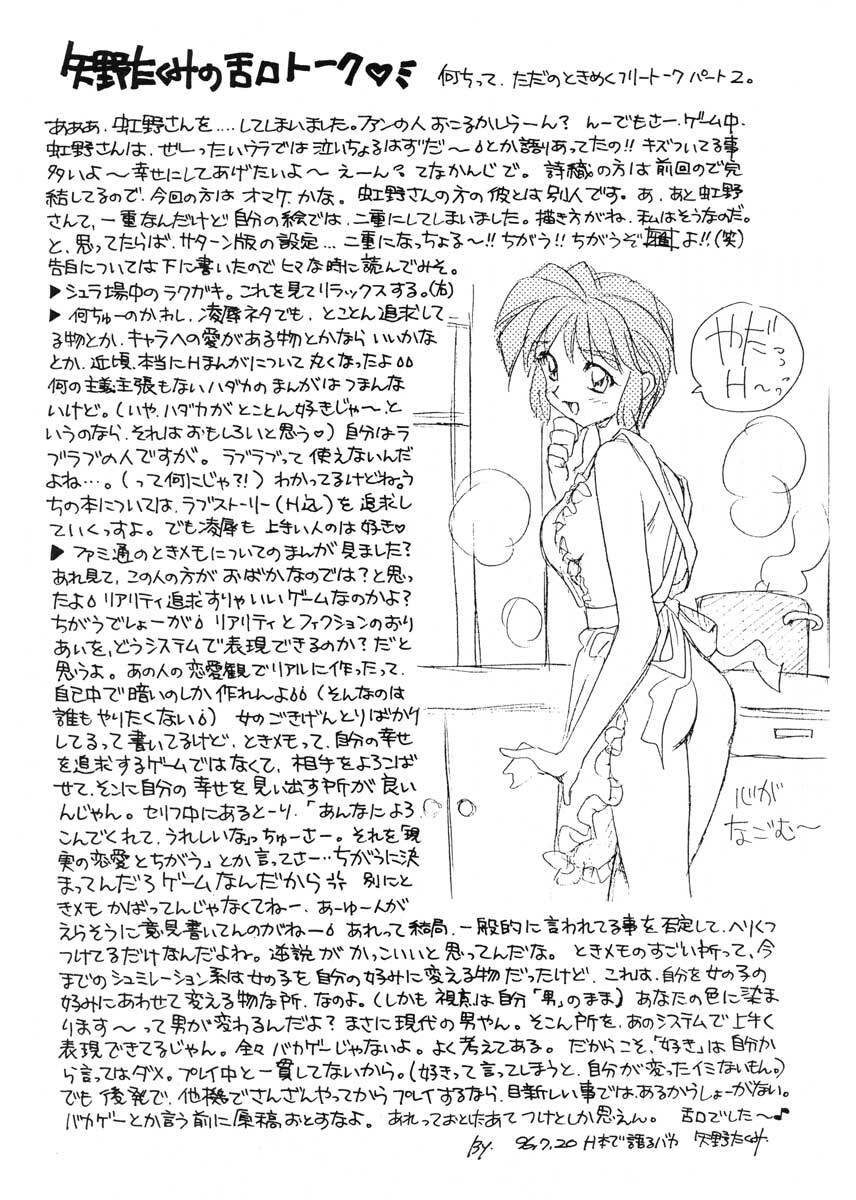 矢野たくみの舌口トーク♡ミ
何ちって、ただのときめくフリートークパート2。
あああ、虹野さんを....してしまいました。ファンの人おこるかしらーん? んーでもさー、ゲーム中、
虹野さんは、ぜーったいウラでは泣いちょるはずだ〜とか語りあってたの!! キズついてる事
多いよ〜幸せにしてあげたいよ〜 えーん? てなかんじで。詩織の方は前回ので完
結してるので、今回の方はオマケかな。虹野さんの方の彼とは別人です。あ、あと虹野
さんて、一重なんだけど自分の絵では、二重にしてしまいました。描き方がね、私はそうなのだ。
と、思ってたらば、サターン版の設定...二重になっちょる〜!! ちがう!! ちがうぞ よ!!(笑)
告白については下に書いたのでヒマな時に読んでみそ。
▶シュラ場中のラクガキ。これを見てリラックスする。(右)
▶何ちゅーのかわし、凌辱ネタでも、とことん追求して
る物とか、キャラへの愛がある物とかなら いいかな
とか、近頃、本当にHまんがについて丸くなったよ
何の主義主張もないハダカのまんがはつまんな
いけど。(いや、ハダカがとことん好きじゃ〜と
いうのなら、それはおもしろいと思う♡) 自分はラ
ブラブの人ですが。ラブラブって使えないんだ
よね...。(って何にじゃ?!) わかってるけどね。う
ちの本については、ラブストーリー(H込)を追求し
ていくっすよ。でも凌辱も上手い人のは好き♡
▶ファミ通のときメモについてのまんが見ました?
あれ見て、この人の方がおばかなのでは?と思っ
たよ リアリティ追求すりゃいいゲームなのかよ?
ちがうでしょーが リアリティとフィクションのおり
あいを、どうシステムで表現できるのか?だと
思うよ。あの人の恋愛観でリアルに作ったって、
自己中で暗いのしか作れんよ(そんなのは
誰もやりたくない) 女のごきげんとりばかり
してるって書いてるけど、ときメモって、自分の幸せ
を追求するゲームではなくて、相手をよろこば
せて、そこに自分の幸せを見い出す所が良い
んじゃん。セリフ中にあるとーり、「あんなによろ
こんでくれて、うれしいな」っちゅーさー。それを「現
実の恋愛とちがう」とか言ってさー‥ちがうに決
まってんだろゲームなんだから 別にと
きメモかばってんじゃなくてねー、あーゆー人が
えらそうに意見書いてんのがねー あれって結局、一般的に言われてる事を否定して、ヘリくつ
つけてるだけなんだよね。逆説がかっこいいと思ってんだな。ときメモのすごい所って、今
までのシュミレーション系は女の子を自分の好みに変える物だったけど、これは、自分を女の子の
好みにあわせて変える物な所、なのよ。(しかも視点は自分「男」のまま) あなたの色に染ま
ります〜って男が変わるんだよ?まさに現代の男やん。そこん所を、あのシステムで上手く
表現できてるじゃん。全々バカゲーじゃないよ。よく考えてある。だからこそ、「好き」は自分か
ら言ってはダメ。プレイ中と一貫してないから。(好きって言ってしまうと、自分が変ったイミないもん。)
でも後発で、他機でさんざんやってからプレイするなら、目新しい事では、あるからしょーがない。
バカゲーとか言う前に原稿おとすなよ。あれっておとしたあてつけとしか思えん。舌口でした〜♪
By. 96.7.20 H本で語るバカ 矢野たくみ
やだっっ
H〜っっ
心が
なごむ〜